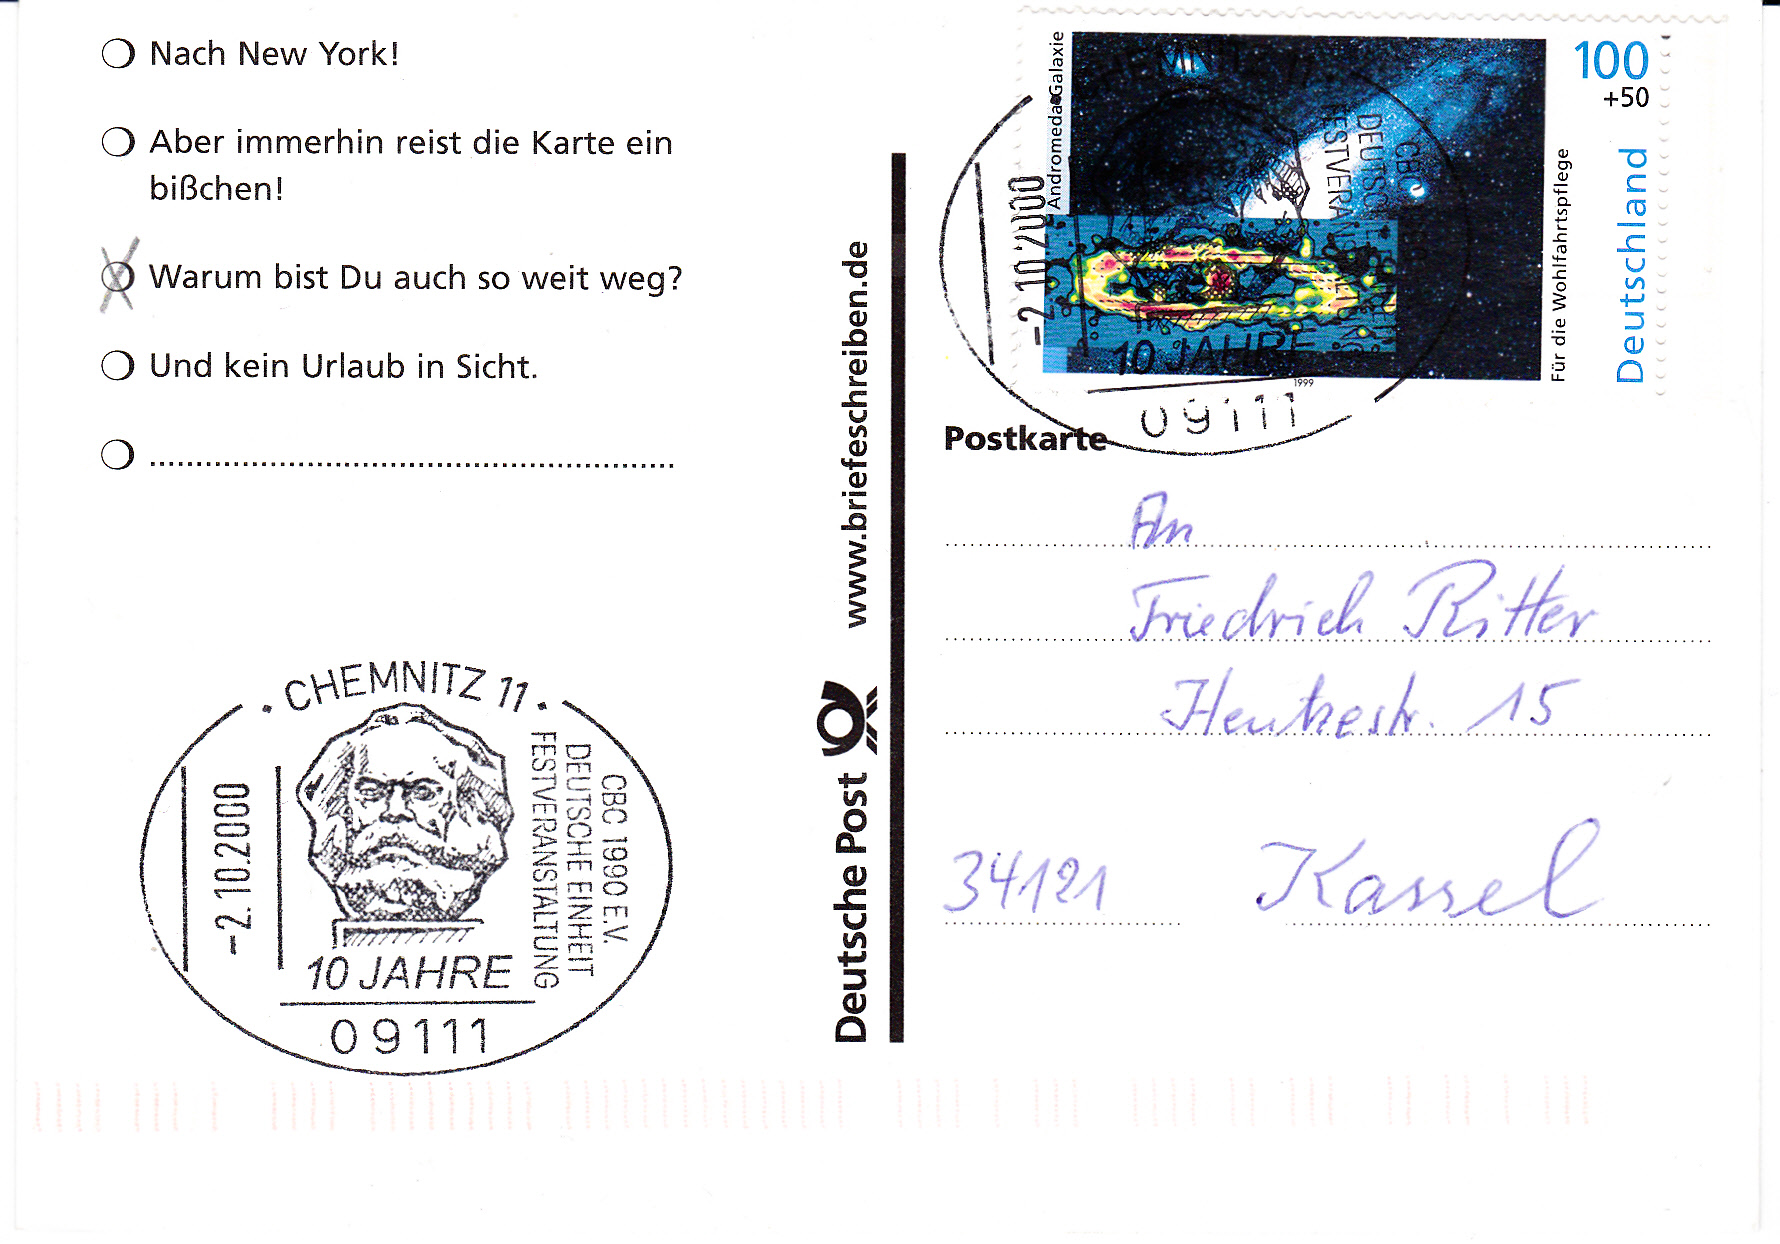 Nach New York!
Aber immerhin reist die Karte ein
bißchen!
Warum bist Du auch so weit weg?
Und kein Urlaub in Sicht.
CHEMNITZ 11
-2.10.2000
CBC 1990 E.V.
DEUTSCHE EINHEIT
FESTVERANSTALTUNG
10 JAHRE
09111
Deutsche Post
www.briefeschreiben.de
Andromeda Galaxie
100
+50
Deutschland
Für die Wohlfahrtspflege
1999
-2.10.2000
CBC
DEUTSCHE
FESTVERA
10 JAHRE
09111
Postkarte
An
Friedrich Ritter
15
34121 Kassel